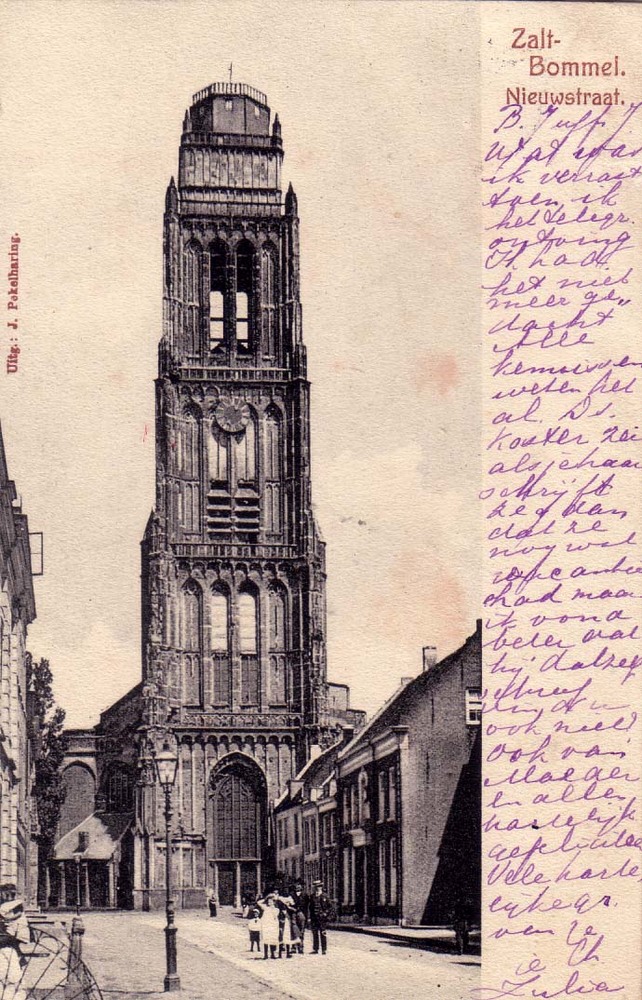 Zalt-
Bommel.
Nieuwstraat.
Uitg.: J. Pekelharing.
B. Juffr.
Wat was
ik verrast
toen ik
het telegr.
ontving
Ik had
het niet
meer ge„
dacht
Alle
kennissen
weten het
al. Ds.
Koster zei
als je haar
schrijft
zeg dan
dat ze
nog wel
vacantie
had maar
ik vond
beter dat
hij dat zelf
schreef
ook niet
Ook van
Moeder
en allen
hartelijk
Vele harte
lyke gr.
van je
Julia